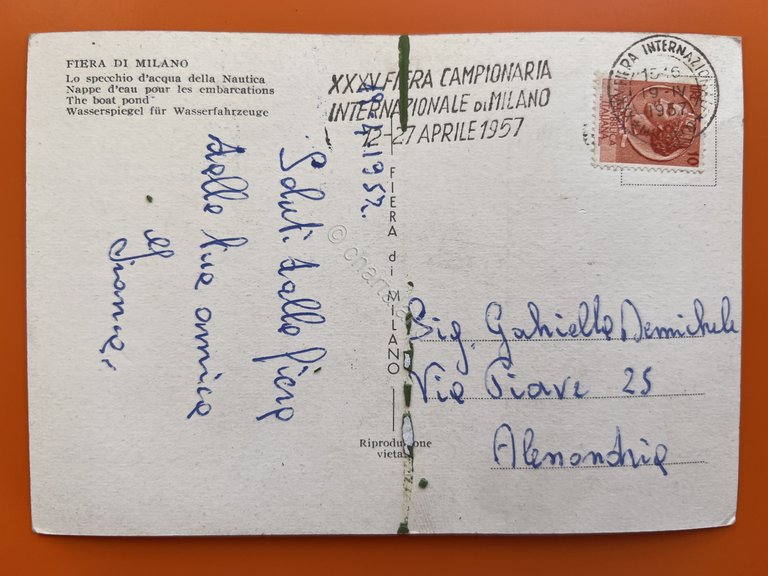 FIERA DI MILANO
Lo specchio d'acqua della Nautica
Nappe d'eau pour les embarcations
The boat pond
Wasserspiegel für Wasserfahrzeuge
XXXV FIERA CAMPIONARIA
INTERNAZIONALE DI MILANO
12-27 APRILE 1957
FIERA INTERNAZION
19-IV
1957
10
19-4-1957.
Saluti dalla fiera
dalla tua amica
Gianna.
FIERA di MILANO
© charta
Sig. Gabriella Demichele
Via Piave 25
Alessandria
Riproduzione
vietata